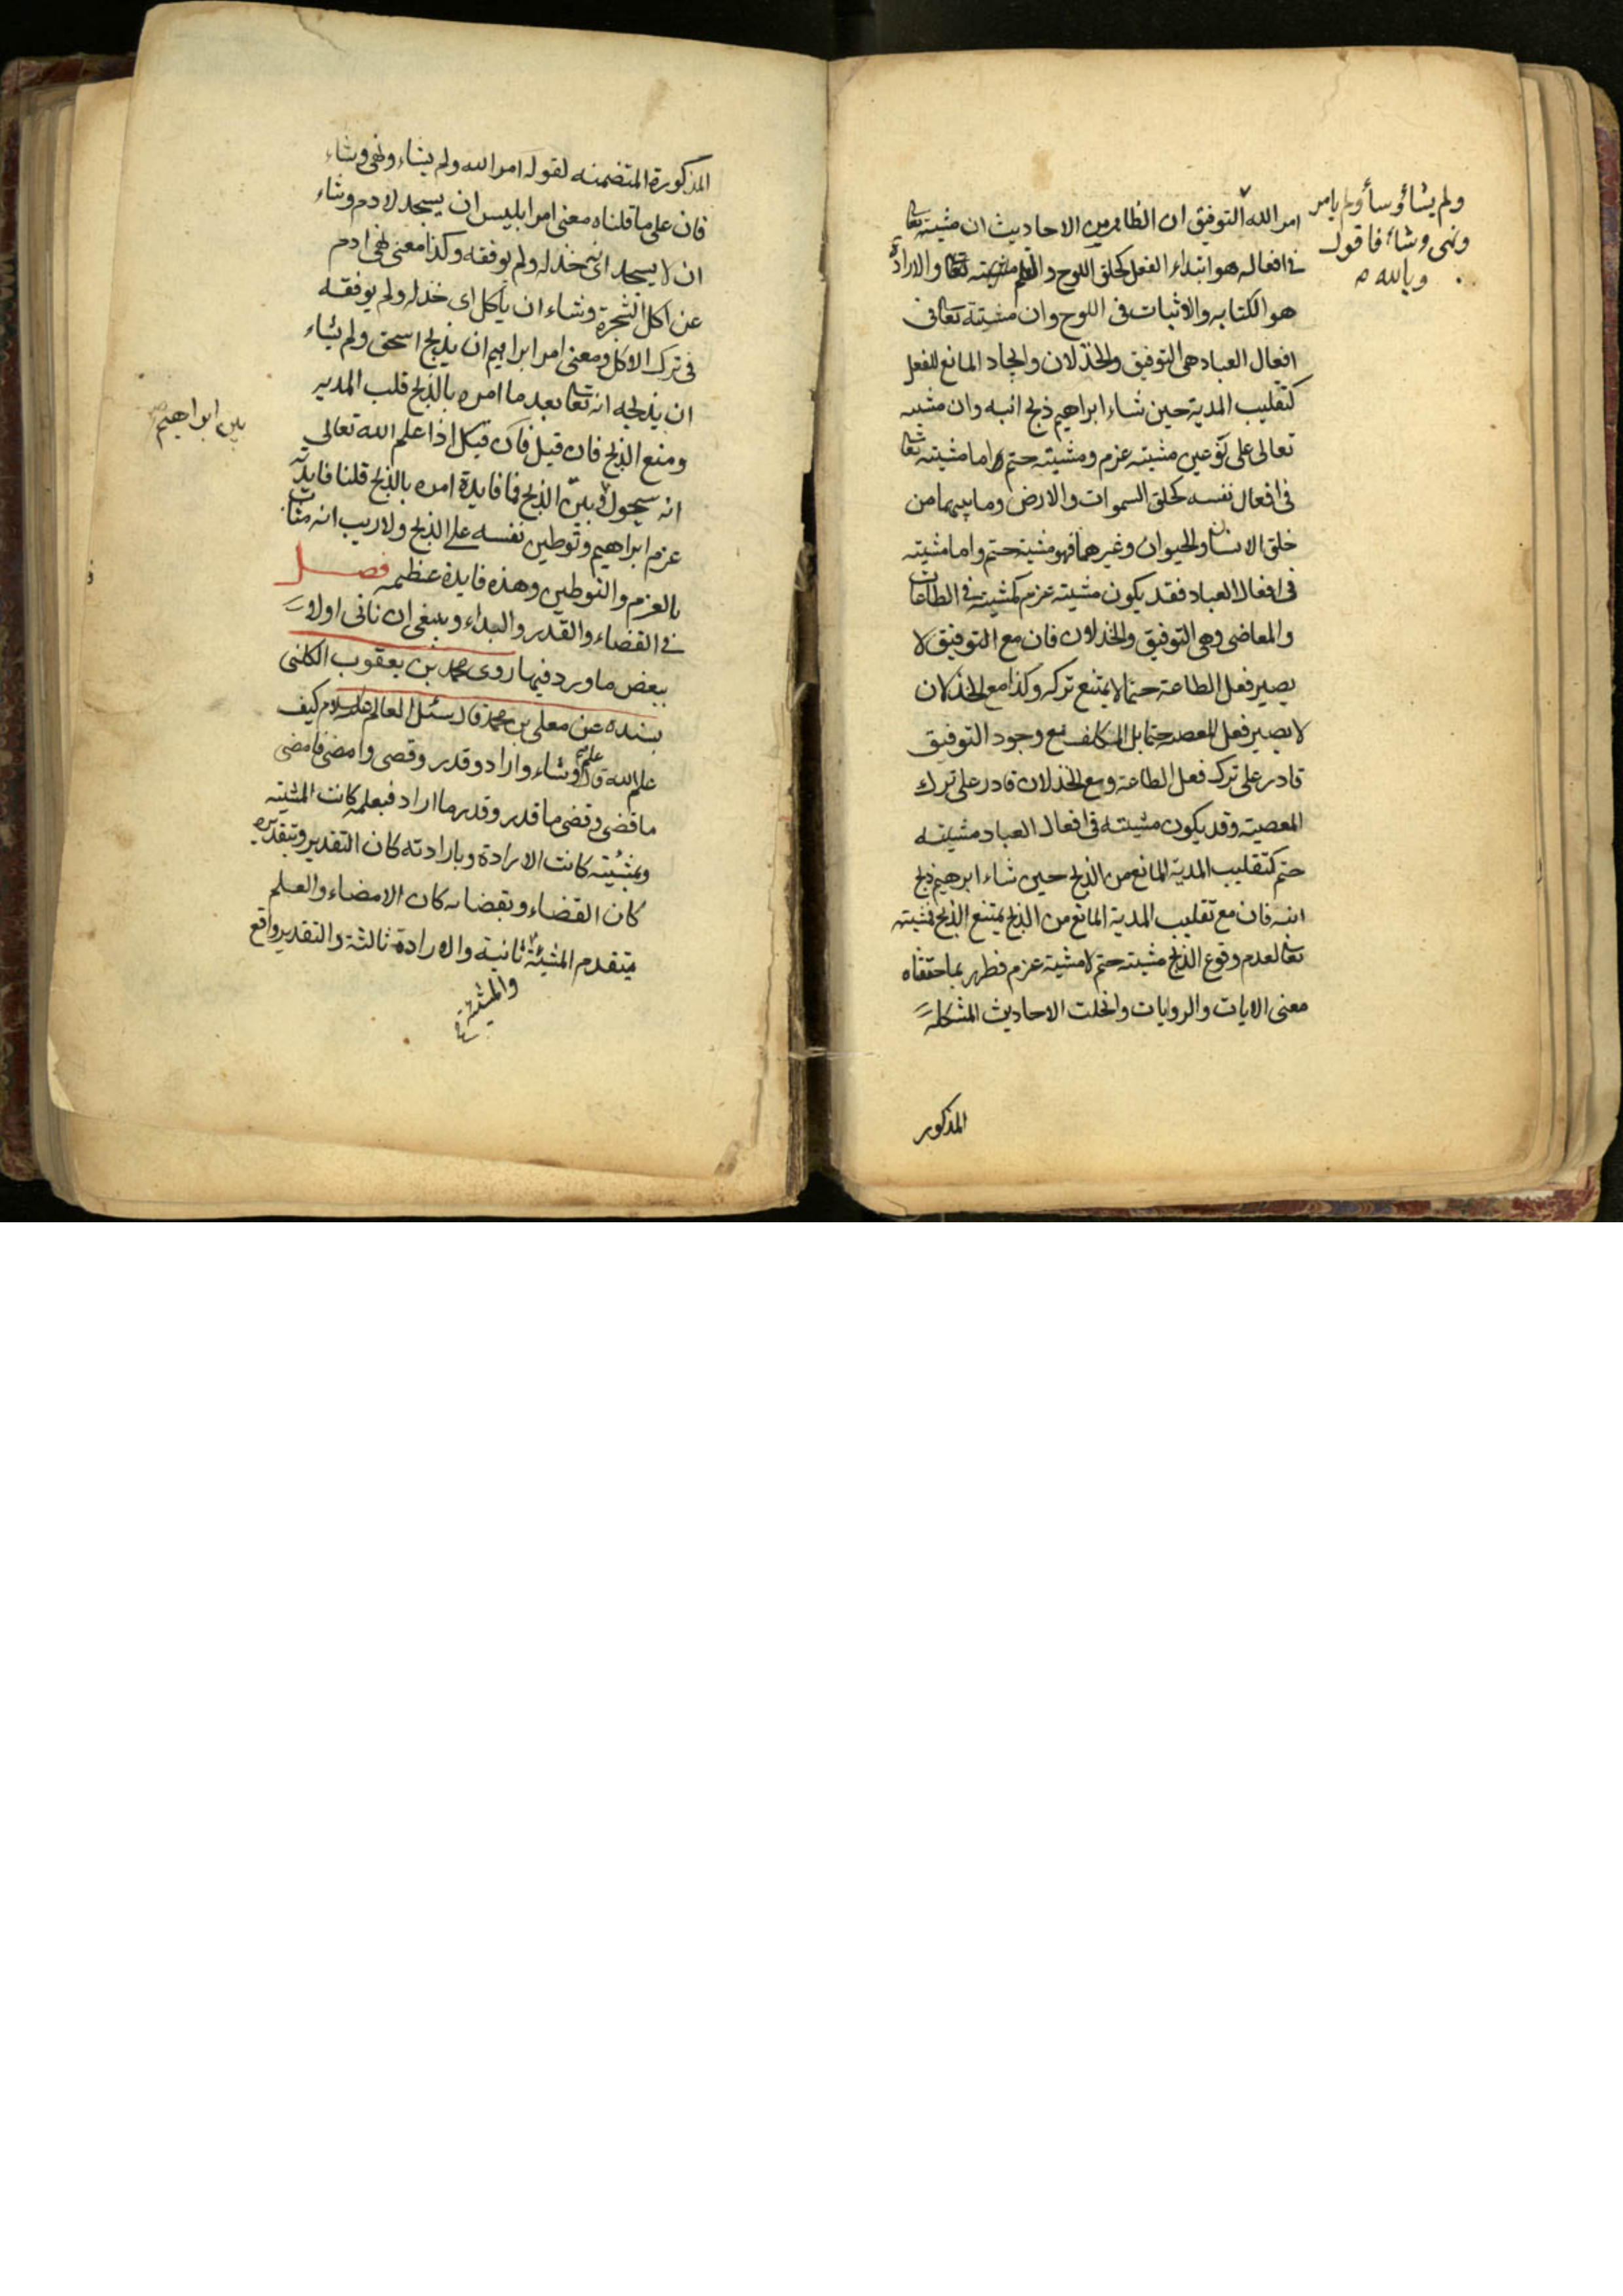 ولم يشأ وشأ ولم يامر
ونهى وشاء فاقول
وبالله
امر الله التوفيق ان الظاهر من الاحاديث ان مشيته تعا
في افعاله هو ابتداء الفعل كخلق اللوح والقلم تعا والارادة
هو الكتابه والاثبات في اللوح وان مشيته تعالى في
افعال العباد هي التوفيق والخذلان وايجاد المانع للفعل
كتقليب المدية حين شاء ابراهيم ذبح ابنه وان مشيته
تعالى على نوعين مشيته عزم ومشيته حتم اما مشيته تعا
في افعال نفسه كخلق السموات والارض وما بينهما من
خلق الانسان والحيوان وغيرهما فهو مشية حتم واما مشيته
في افعال العباد فقد يكون مشيته عزم كمشيته في الطاعات
والمعاصى وهى التوفيق والخذلان فان مع التوفيق لا
يصير فعل الطاعة حتما لا يمتنع تركه وكذا مع الخذلان
لا يصير فعل المعصيه حتما بل المكلف مع وجود التوفيق
قادر على ترك فعل الطاعة ومع الخذلان قادر على ترك
المعصية وقد يكون مشيته في افعال العباد مشيته
حتم كتقليب المدية المانع من الذبح حين شاء ابرهيم ذبح
ابنه فان مع تقليب المدية المانع من الذبح يمتنع الذبح فمشيته
تعا لعدم وقوع الذبح مشيته حتم لا مشية عزم فظهر بما حققناه
معنى الايات والروايات وانحلت الاحاديث المشكلة
المذكور
المذكورة المتضمنه لقوله امر الله ولم يشاء ونهى وشاء
فان على ما قلناه معنى امر ابليس ان يسجد لادم وشاء
ان لا يسجد اى خذله ولم يوفقه وكذا معنى نهى ادم
عن اكل الشجرة وشاء ان ياكل اى خذله ولم يوفقه
في ترك الاكل ومعنى امر ابراهيم ان يذبح اسحق ولم يشاء
ان يذبحه انه تعا بعد ما امره بالذبح قلب المديه
ومنع الذبح فان قيل فان قيل اذا علم الله تعالى
انه سيحول بين الذبح فما فايدة امره بالذبح قلنا فايدته
بين ابراهيم
عزم ابراهيم وتوطين نفسه على الذبح ولا ريب انه مثاب
بالعزم والتوطين وهذه فايدة عظيمه فصل
في القضاء والقدر والبداء وينبغي ان ناتى اولا
ببعض ما ورد فيها روى محمد بن يعقوب الكلنى
بسنده عن معلى بن محمد قال سئل العالم عليه السلام كيف
علم الله قال علم وشاء واراد وقدر وقضى وامضى فامضى
ما قضى وقضى ما قدر وقدر ما اراد فبعلمه كانت المشيته
وبمشيته كانت الارادة وبارادته كان التقدير وبتقديره
كان القضاء وبقضائه كان الامضاء والعلم
متقدم المشيئة ثانية والارادة ثالثة والتقدير واقع
والمشية